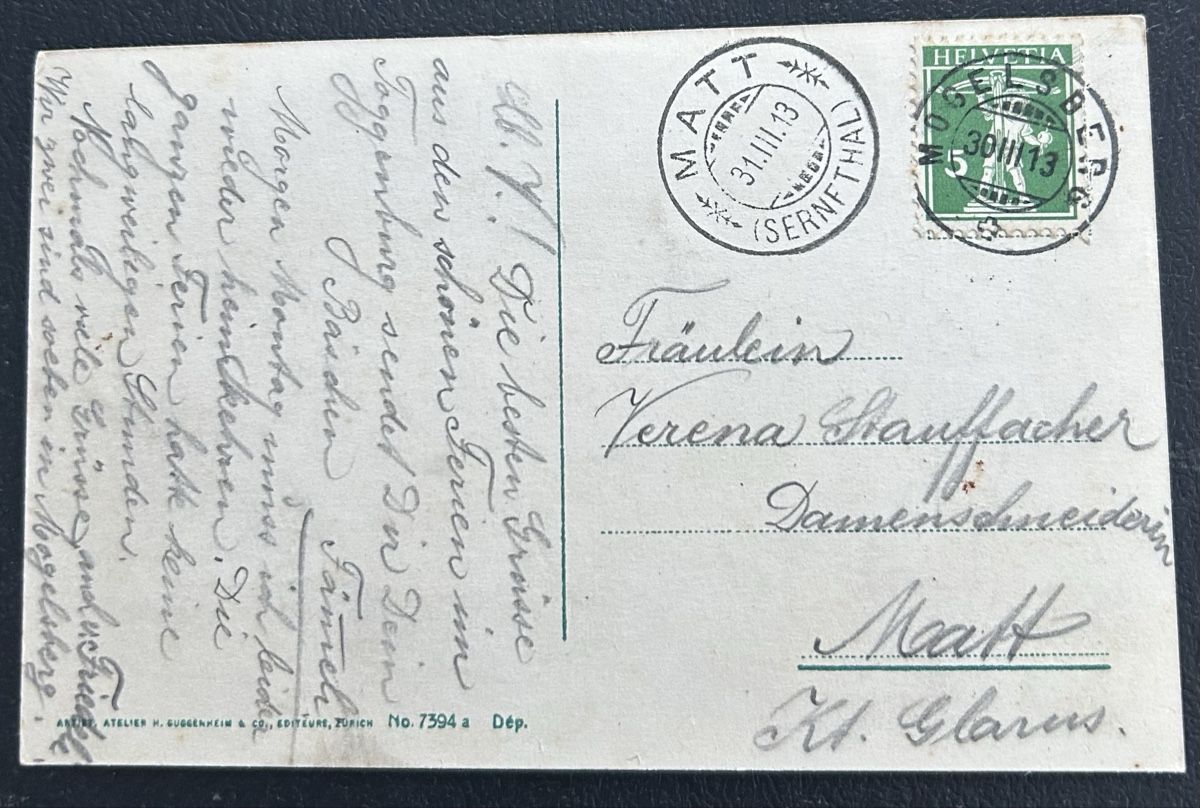 Die besten Grüsse
aus den schönen Ferien im
Toggenburg sendet Dir Dein
Bäschen
Morgen Montag muss ich leider
wieder heimkehren. Die
ganzen Ferien hatte keine
langweiligen Stunden.
Nochmals viele Grüsse
Wir zwei sind soeben in Mogelsberg.
ARTIST. ATELIER H. GUGGENHEIM & CO., EDITEURS, ZÜRICH No. 7394 a Dép.
MATT
31.III.13
(SERNFTHAL)
HELVETIA
5
MOGELSBERG
30III13
Fräulein
Verena Stauffacher
Damenschneiderin
Matt
Kt. Glarus.